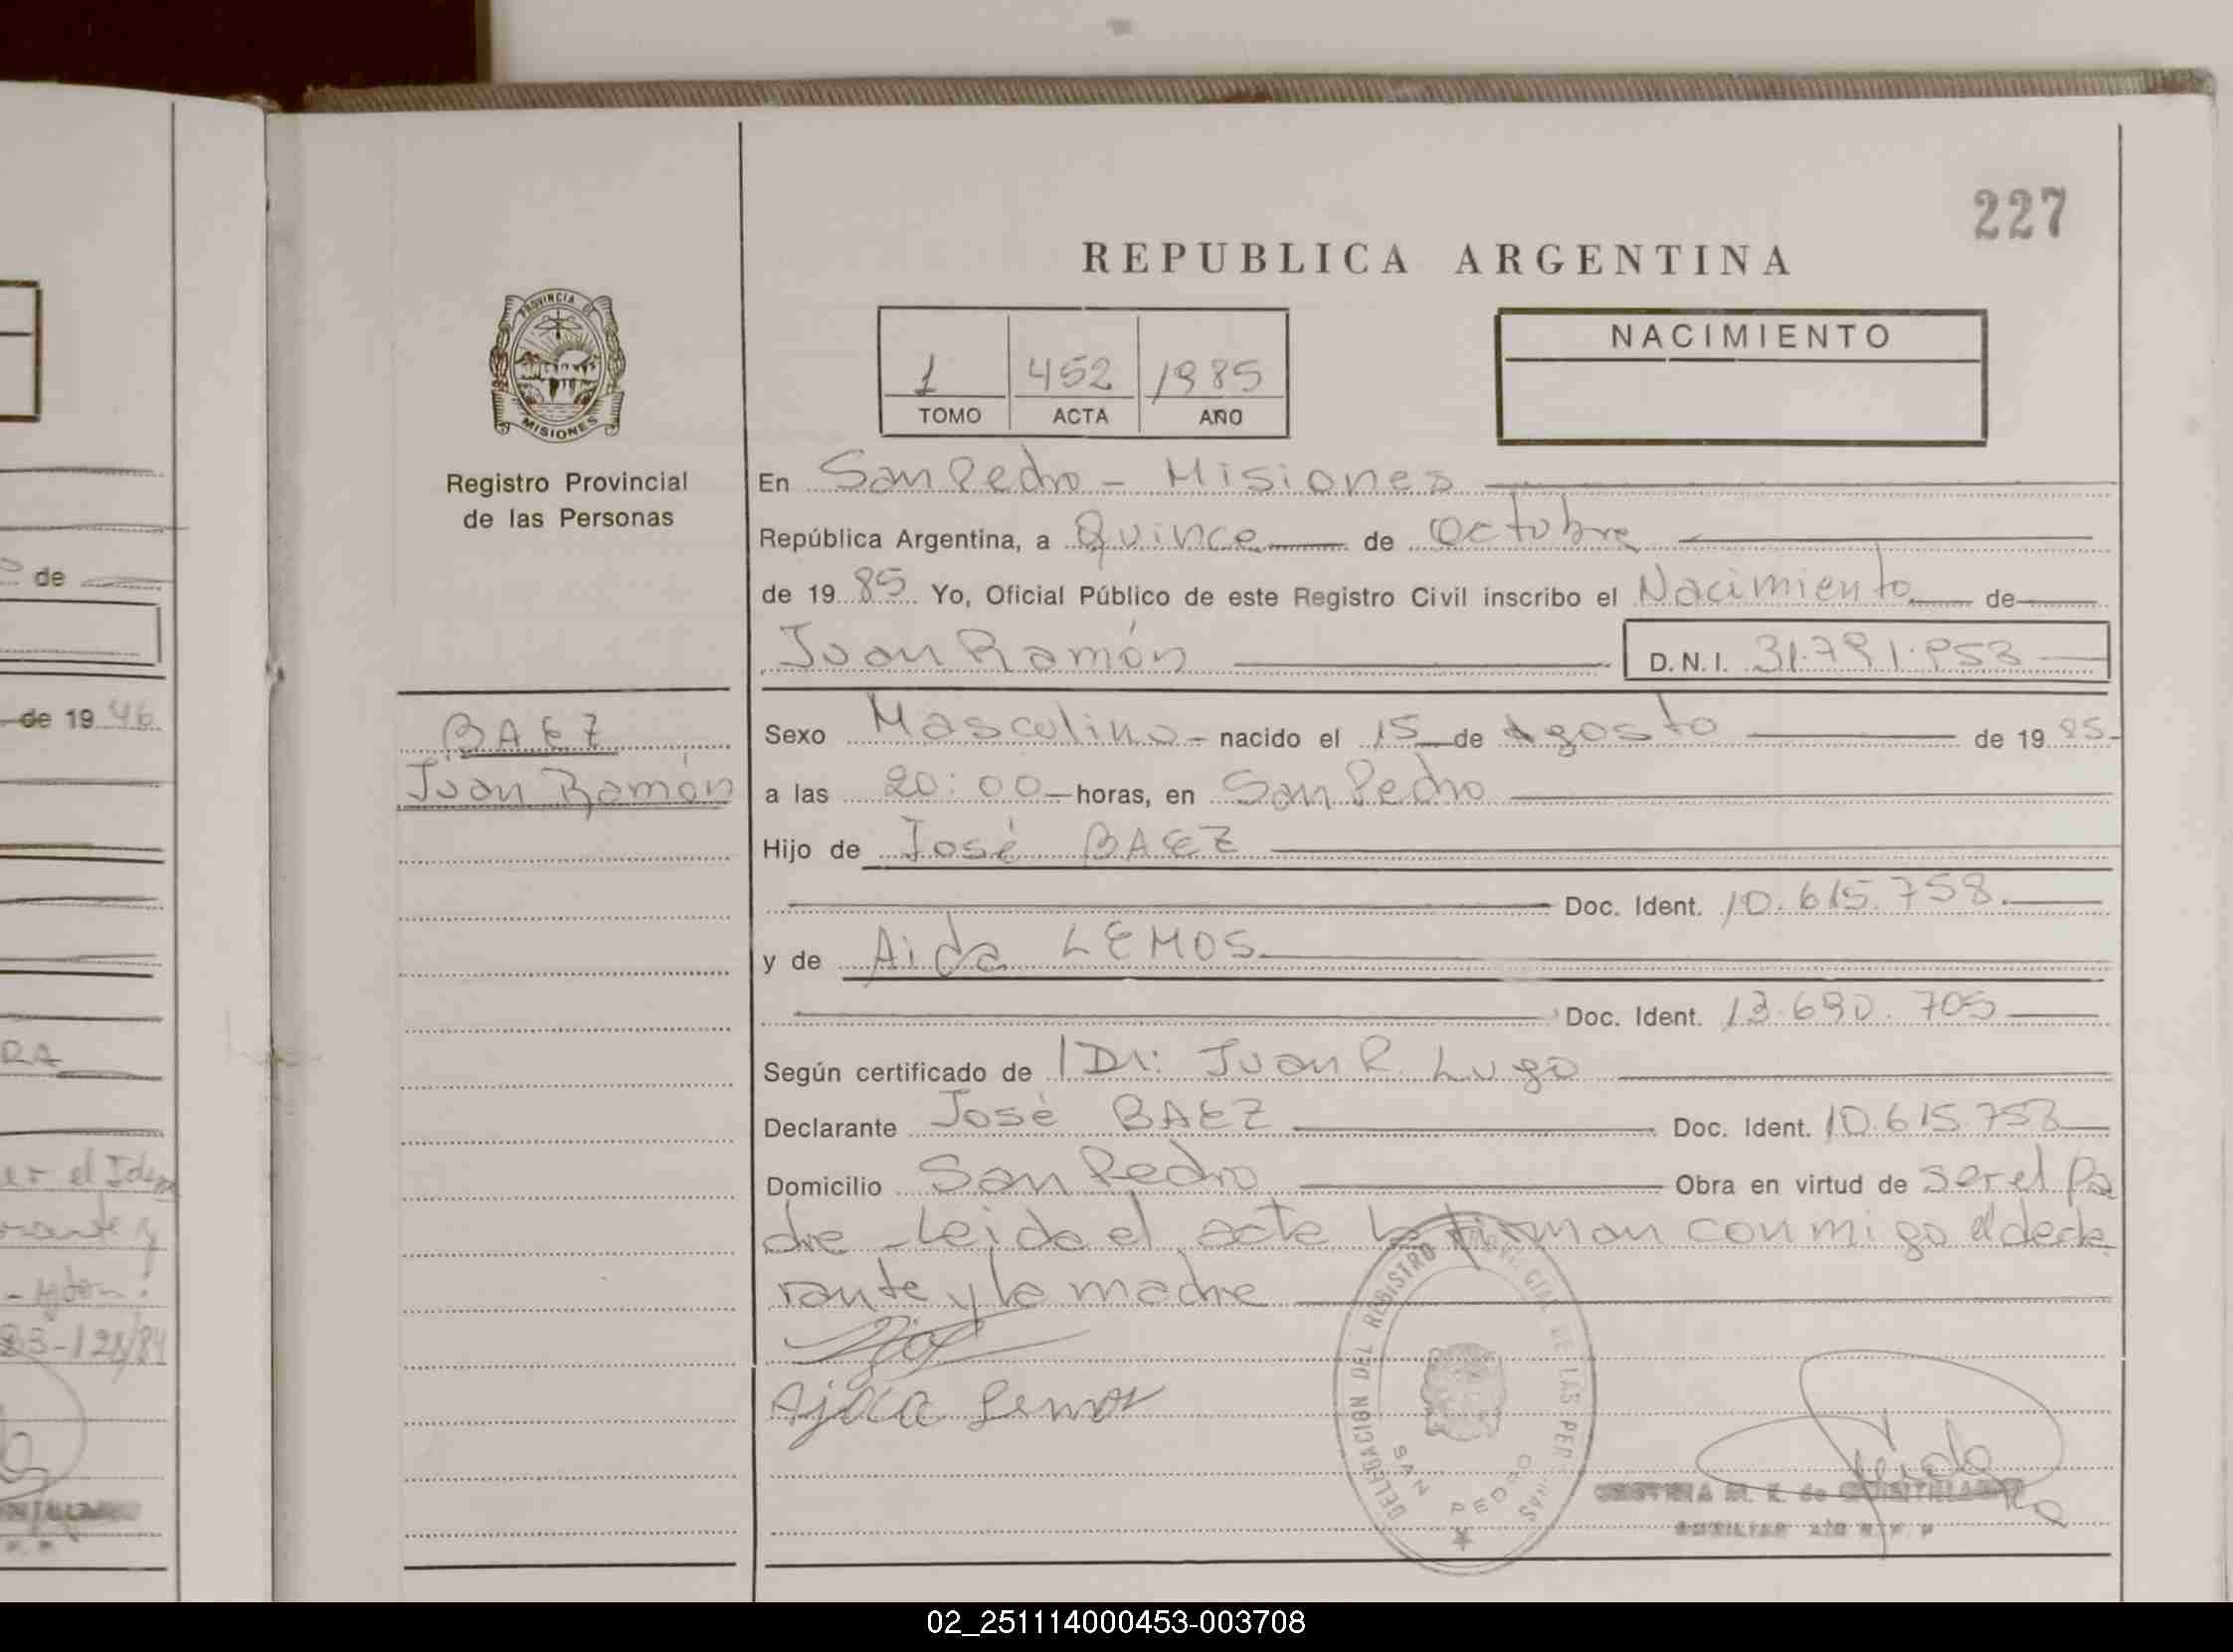 227
REPUBLICA ARGENTINA
PROVINCIA DE
MISIONES
Registro Provincial
de las Personas
1 452 1985
TOMO ACTA AÑO
NACIMIENTO
En San Pedro - Misiones
República Argentina, a Quince de Octubre
de 19 85 Yo, Oficial Público de este Registro Civil inscribo el Nacimiento de
Juan Ramón D.N.I. 31.791.953
BAEZ
Juan Ramón
Sexo Masculino - nacido el 15 de Agosto de 19 85
a las 20:00 horas, en San Pedro
Hijo de José BAEZ
Doc. Ident. 10.615.758
y de Aida LEMOS
Doc. Ident. 13.690.705
Según certificado de Dr: Juan R. Lugo
Declarante José BAEZ Doc. Ident. 10.615.758
Domicilio San Pedro Obra en virtud de ser el Pa
dre - Leida el acta la firman conmigo el decla
rante y la madre
Ajda Lemos
DELEGACION DEL REGISTRO PROVINCIAL DE LAS PERSONAS
SAN PEDRO
de 19 46
de
RA
02_251114000453-003708